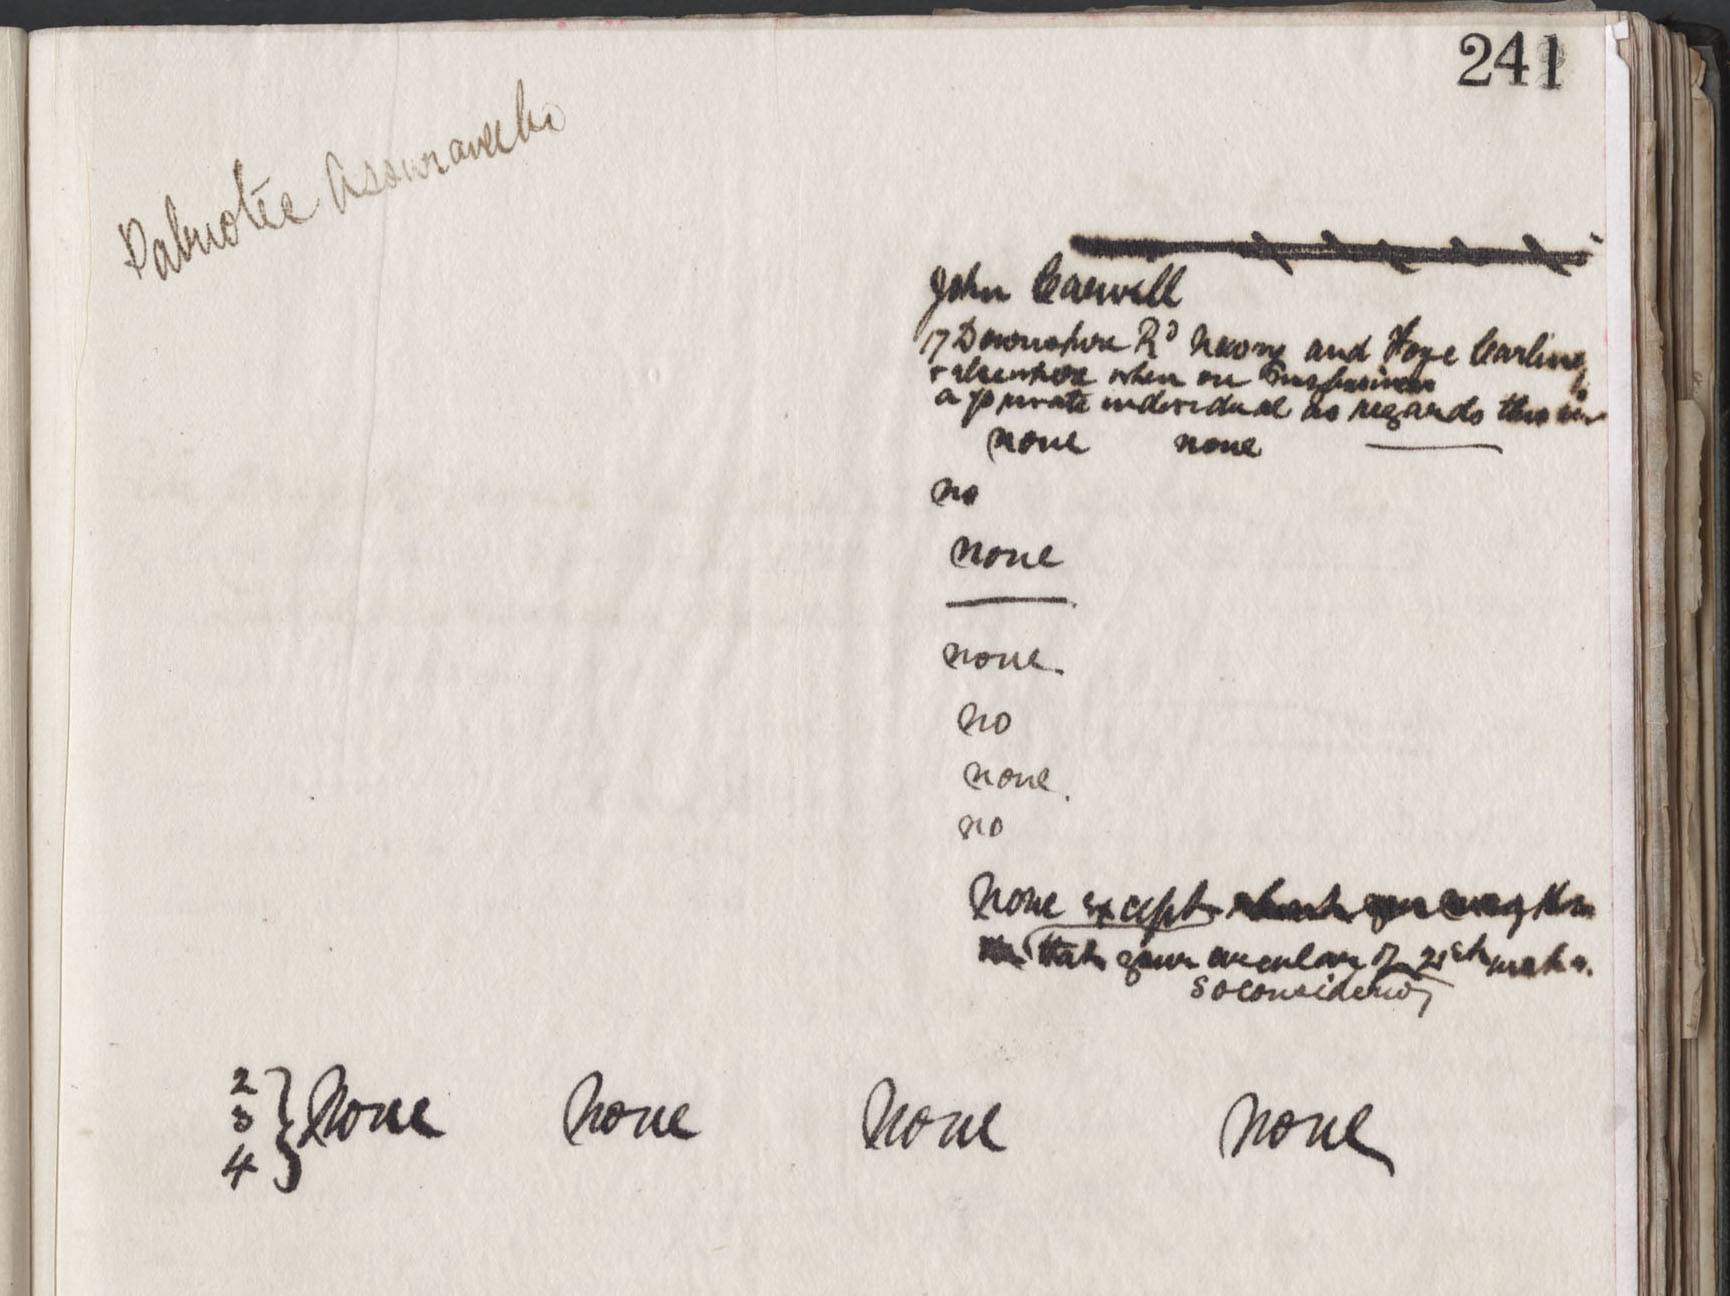 241
Patriotic Assurance Co
John Carvill
17 Downshire Rd Newry and Foxe Carling
& elsewhere when on business
a private individual as regards this
none none
no
none
none.
no
none.
no
None except
that your circular of 21st
so considering
2
3 None None None None
4